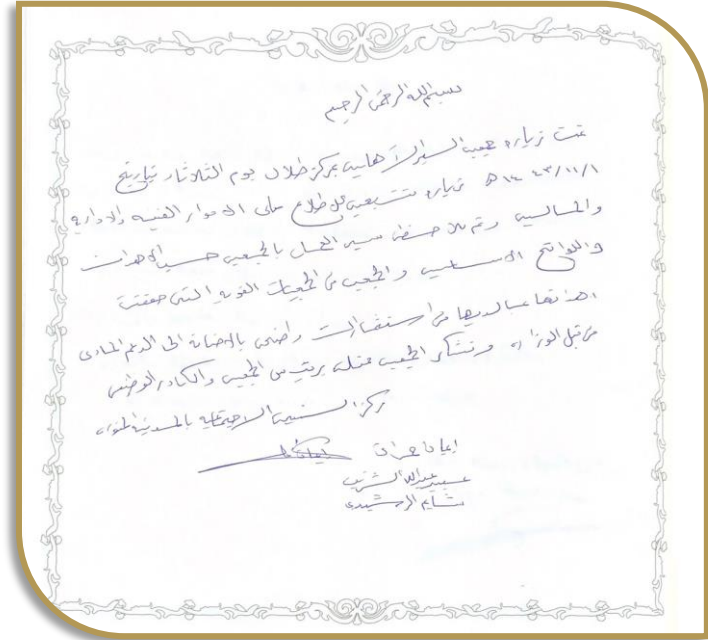 بسم الله الرحمن الرحيم
تمت زيارة جمعية البر الأهلية بمركز طلال يوم الثلاثاء بتاريخ
١٤٤٣/١١/١ هـ زيارة تتبعية للاطلاع على الأمور الفنية والإدارية
والمالية وتم ملاحظة سير العمل بالجمعية حسب الأهداف
واللوائح الأساسية والجمعية من الجمعيات القوية التي حققت
أهدافها بما لديها من استثمارات بالإضافة إلى الدعم المادي
من قبل الوزارة ونشكر الجمعية ممثلة برئيس الجمعية والكادر الوظيفي
مركز التنمية الاجتماعية بالمدينة المنورة
عبير عبدالله الشريف
الرشيدي